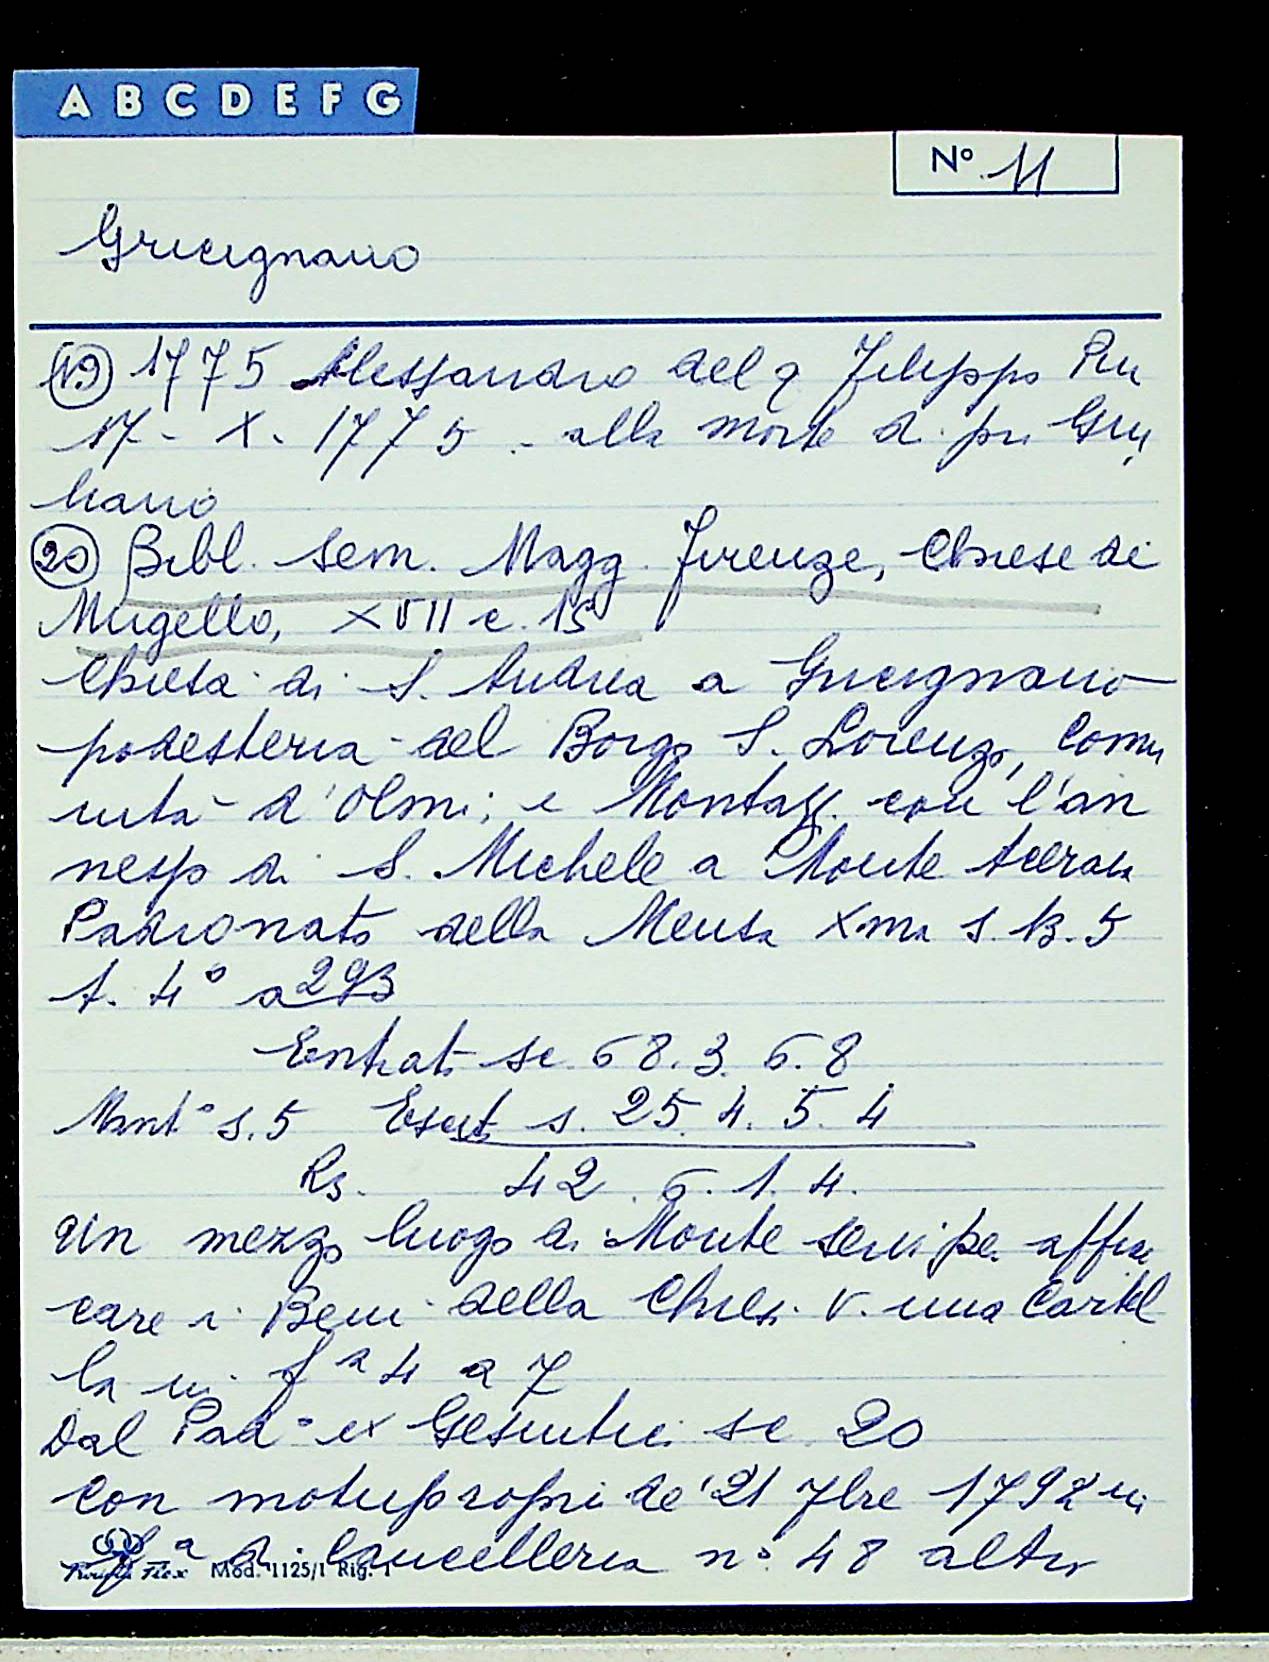 A B C D E F G
N° 11
Gricignano
(19) 1775 Alessandro del q Filippo
17 - X - 1775 - alla morte di
(20) Bibl. Sem. Magg. Firenze, Chiese di
Mugello, XVII c. 15
Chiesa di S. Andrea a Gricignano
podesteria del Borgo S. Lorenzo, Comu
nità d'Olmi; e Montazz. con l'an
nesso di S. Michele a Monte
Padronato della Mensa s. B. 5
t. 4° a 293
Entrat. sc. 68. 3. 6. 8
Mant° s. 5 s. 25. 4. 5. 4
Rs. 42. 6. 1. 4.
Un mezzo luogo di Monte
care i Beni della Chies. V. una Cartel
la in f^a 4 a 7
Dal Pad° ex Gesuitic. sc 20
con motuproprio de' 21 7bre 1792 in
f^a di Cancelleria n° 48 altri
Mod. 1125/1 Rig. 1